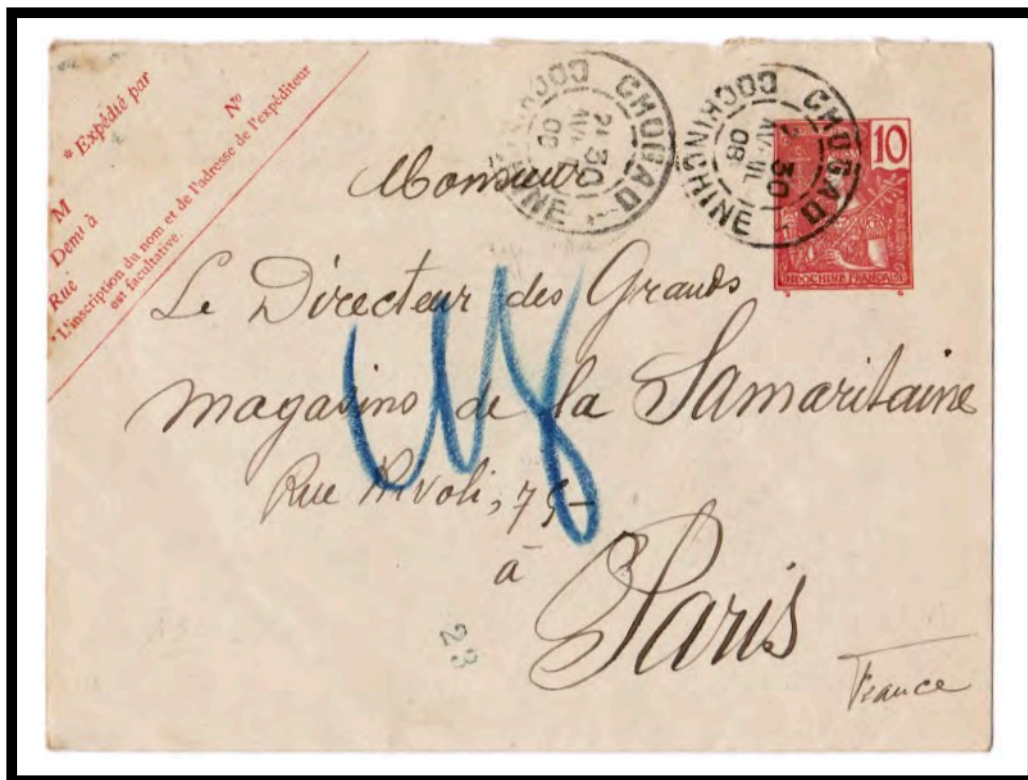 * Expédié par
N°
M
Demt à
Rue
* L'inscription du nom et de l'adresse de l'expéditeur
est facultative.
CHOGAO
COCHINCHINE
30
AVRIL
08
CHOGAO
COCHINCHINE
30
AVRIL
08
10
INDOCHINE FRANÇAISE
Monsieur
Le Directeur des Grands
magasins de la Samaritaine
Rue Rivoli, 75
à
Paris
France
23